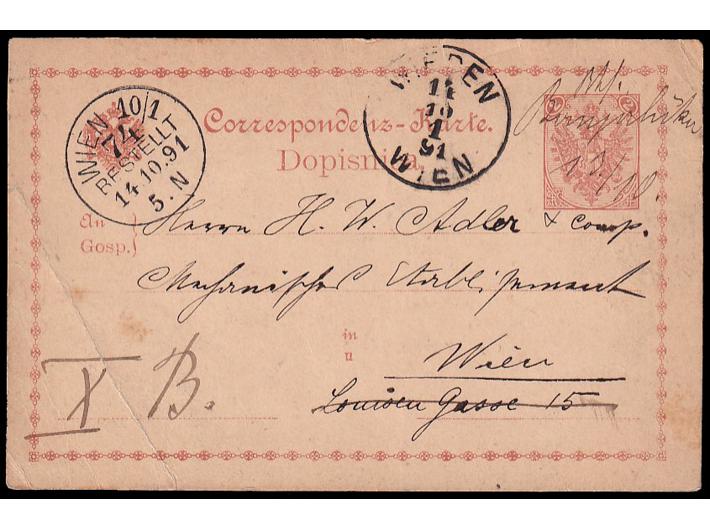 WIEN 10/1
74
BESTELLT
14.10.91
5. N
WIEDEN
14
10
1
91
WIEN
Correspondenz-Karte.
Dopisnica.
2
2
13/10.
An
Gosp.
Herrn H. W. Adler & Comp.
Mechanisches Etablissement
in
u
Wien
Louisen Gasse 15
X B.